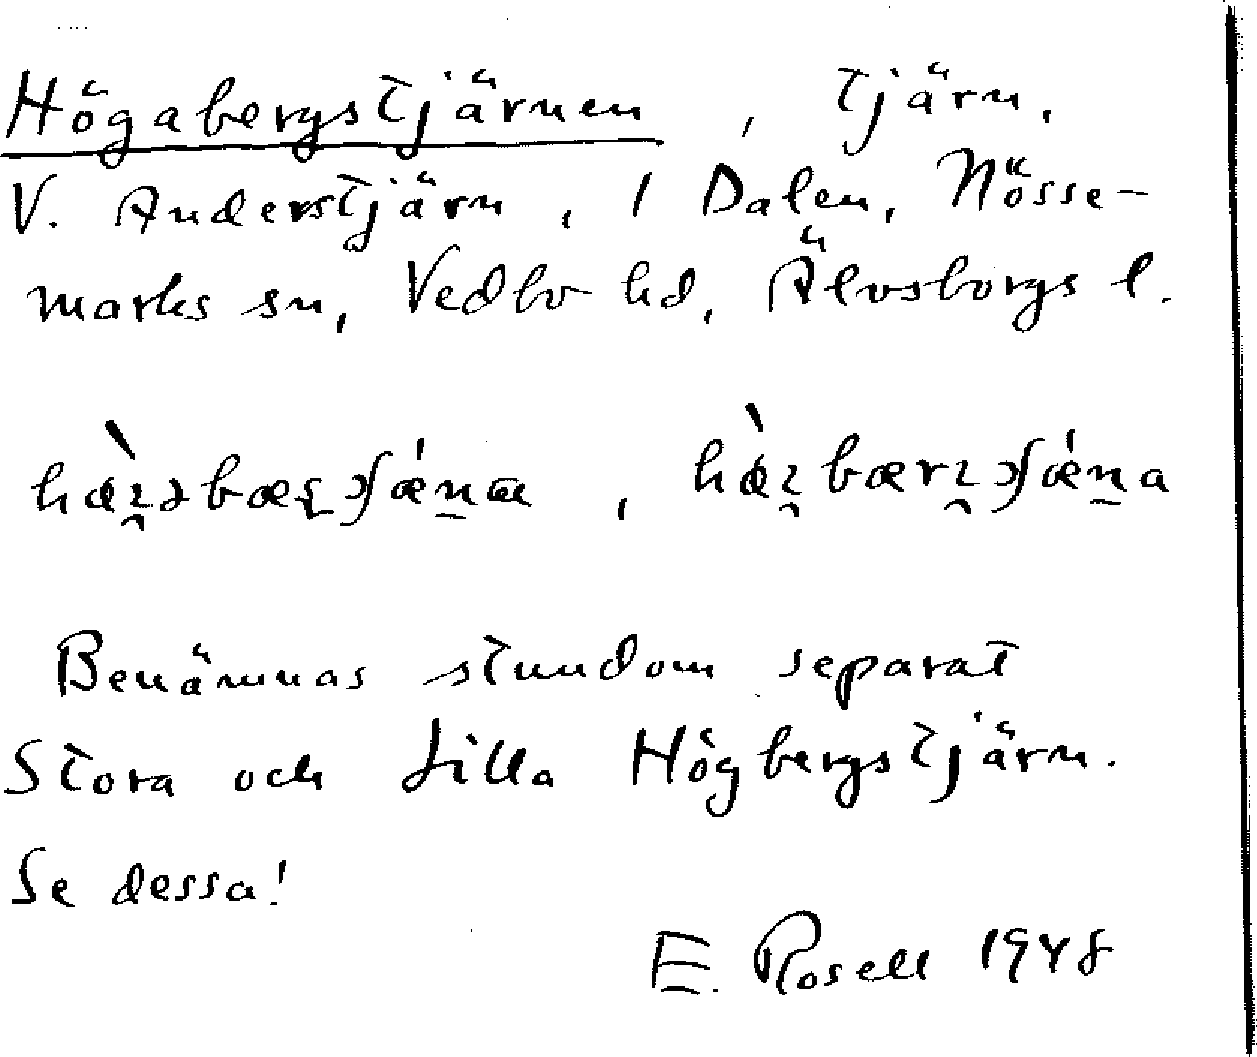 Högabergstjärnen, tjärn.
V. Anderstjärn, 1 Dalen, Nösse-
marks sn, Vedbo hd, Älvsborgs l.
Benämnas stundom separat
Stora och Lilla Högbergstjärn.
Se dessa!
E. Rosell 1948